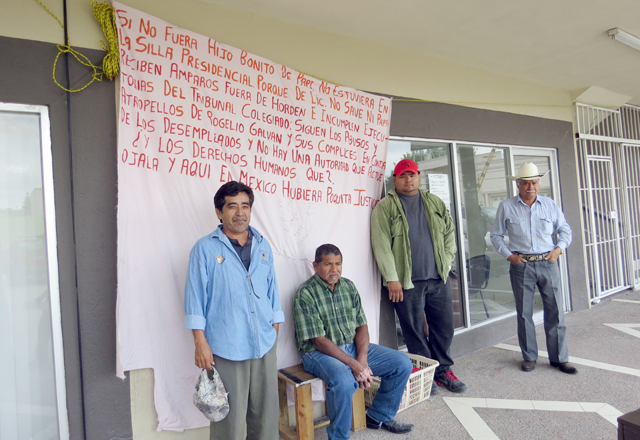 SI NO FUERA HIJO BONITO DE PAPI NO ESTUVIERA EN
LA SILLA PRESIDENCIAL PORQUE DE LIC. NO SAVE NI PAPA
RECIBEN AMPAROS FUERA DE HORDEN E INCUMPLEN EJECU-
TORIAS DEL TRIBUNAL COLEGIADO; SIGUEN LOS ABUSOS Y
ATROPELLOS DE ROGELIO GALVAN Y SUS COMPLICES EN CONTRA
DE LOS DESEMPLEADOS Y NO HAY UNA AUTORIDAD QUE ACTUE
¿ Y LOS DERECHOS HUMANOS QUE?
OJALA Y AQUI EN MEXICO HUBIERA POQUITA JUSTICIA